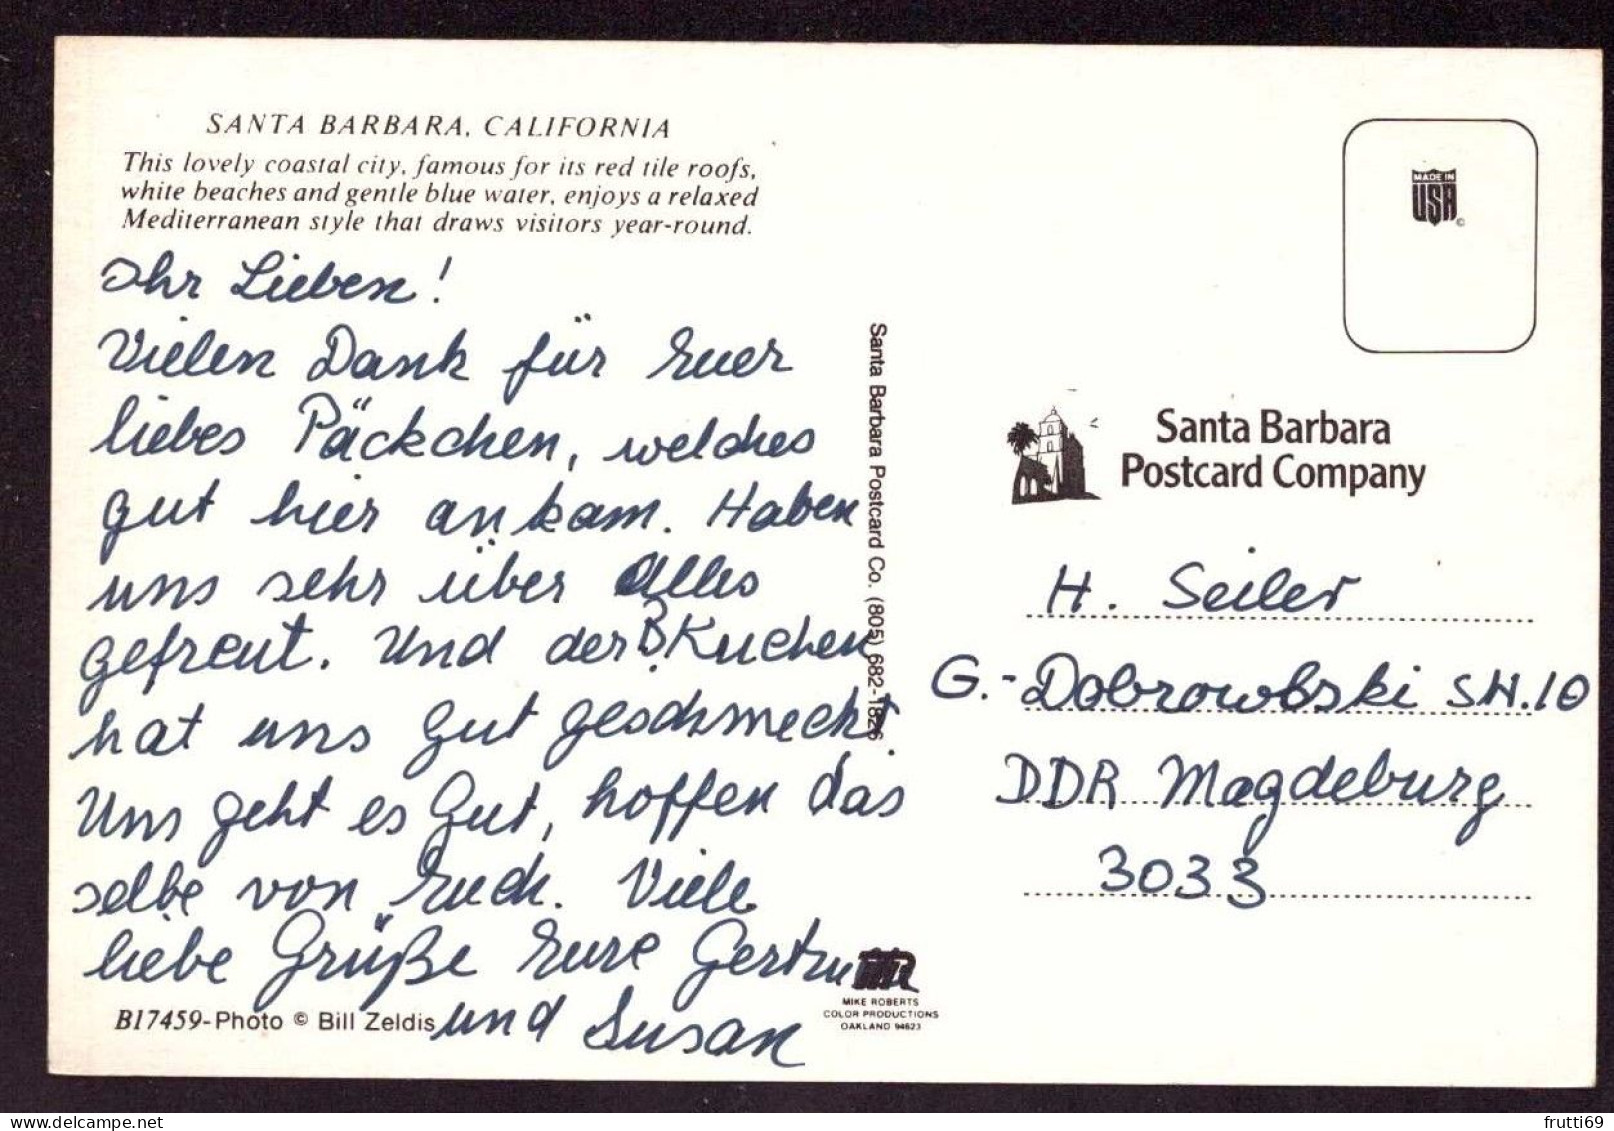 SANTA BARBARA, CALIFORNIA
This lovely coastal city, famous for its red tile roofs,
white beaches and gentle blue water, enjoys a relaxed
Mediterranean style that draws visitors year-round.
Ihr Lieben!
Vielen Dank für Euer
liebes Päckchen, welches
gut hier ankam. Haben
uns sehr über Alles
gefreut. Und der B. Kuchen
hat uns gut geschmeckt.
Uns geht es gut, hoffen das
selbe von Euch. Viele
liebe Grüße Eure Gertru
und Susan
B17459-Photo © Bill Zeldis
Santa Barbara Postcard Co. (805) 682-1826
MIKE ROBERTS
COLOR PRODUCTIONS
OAKLAND 94623
MADE IN
USA
©
Santa Barbara
Postcard Company
H. Seiler
G.-Dobrowolski SH.10
DDR Magdeburg
3033
delcampe.net
frutti69